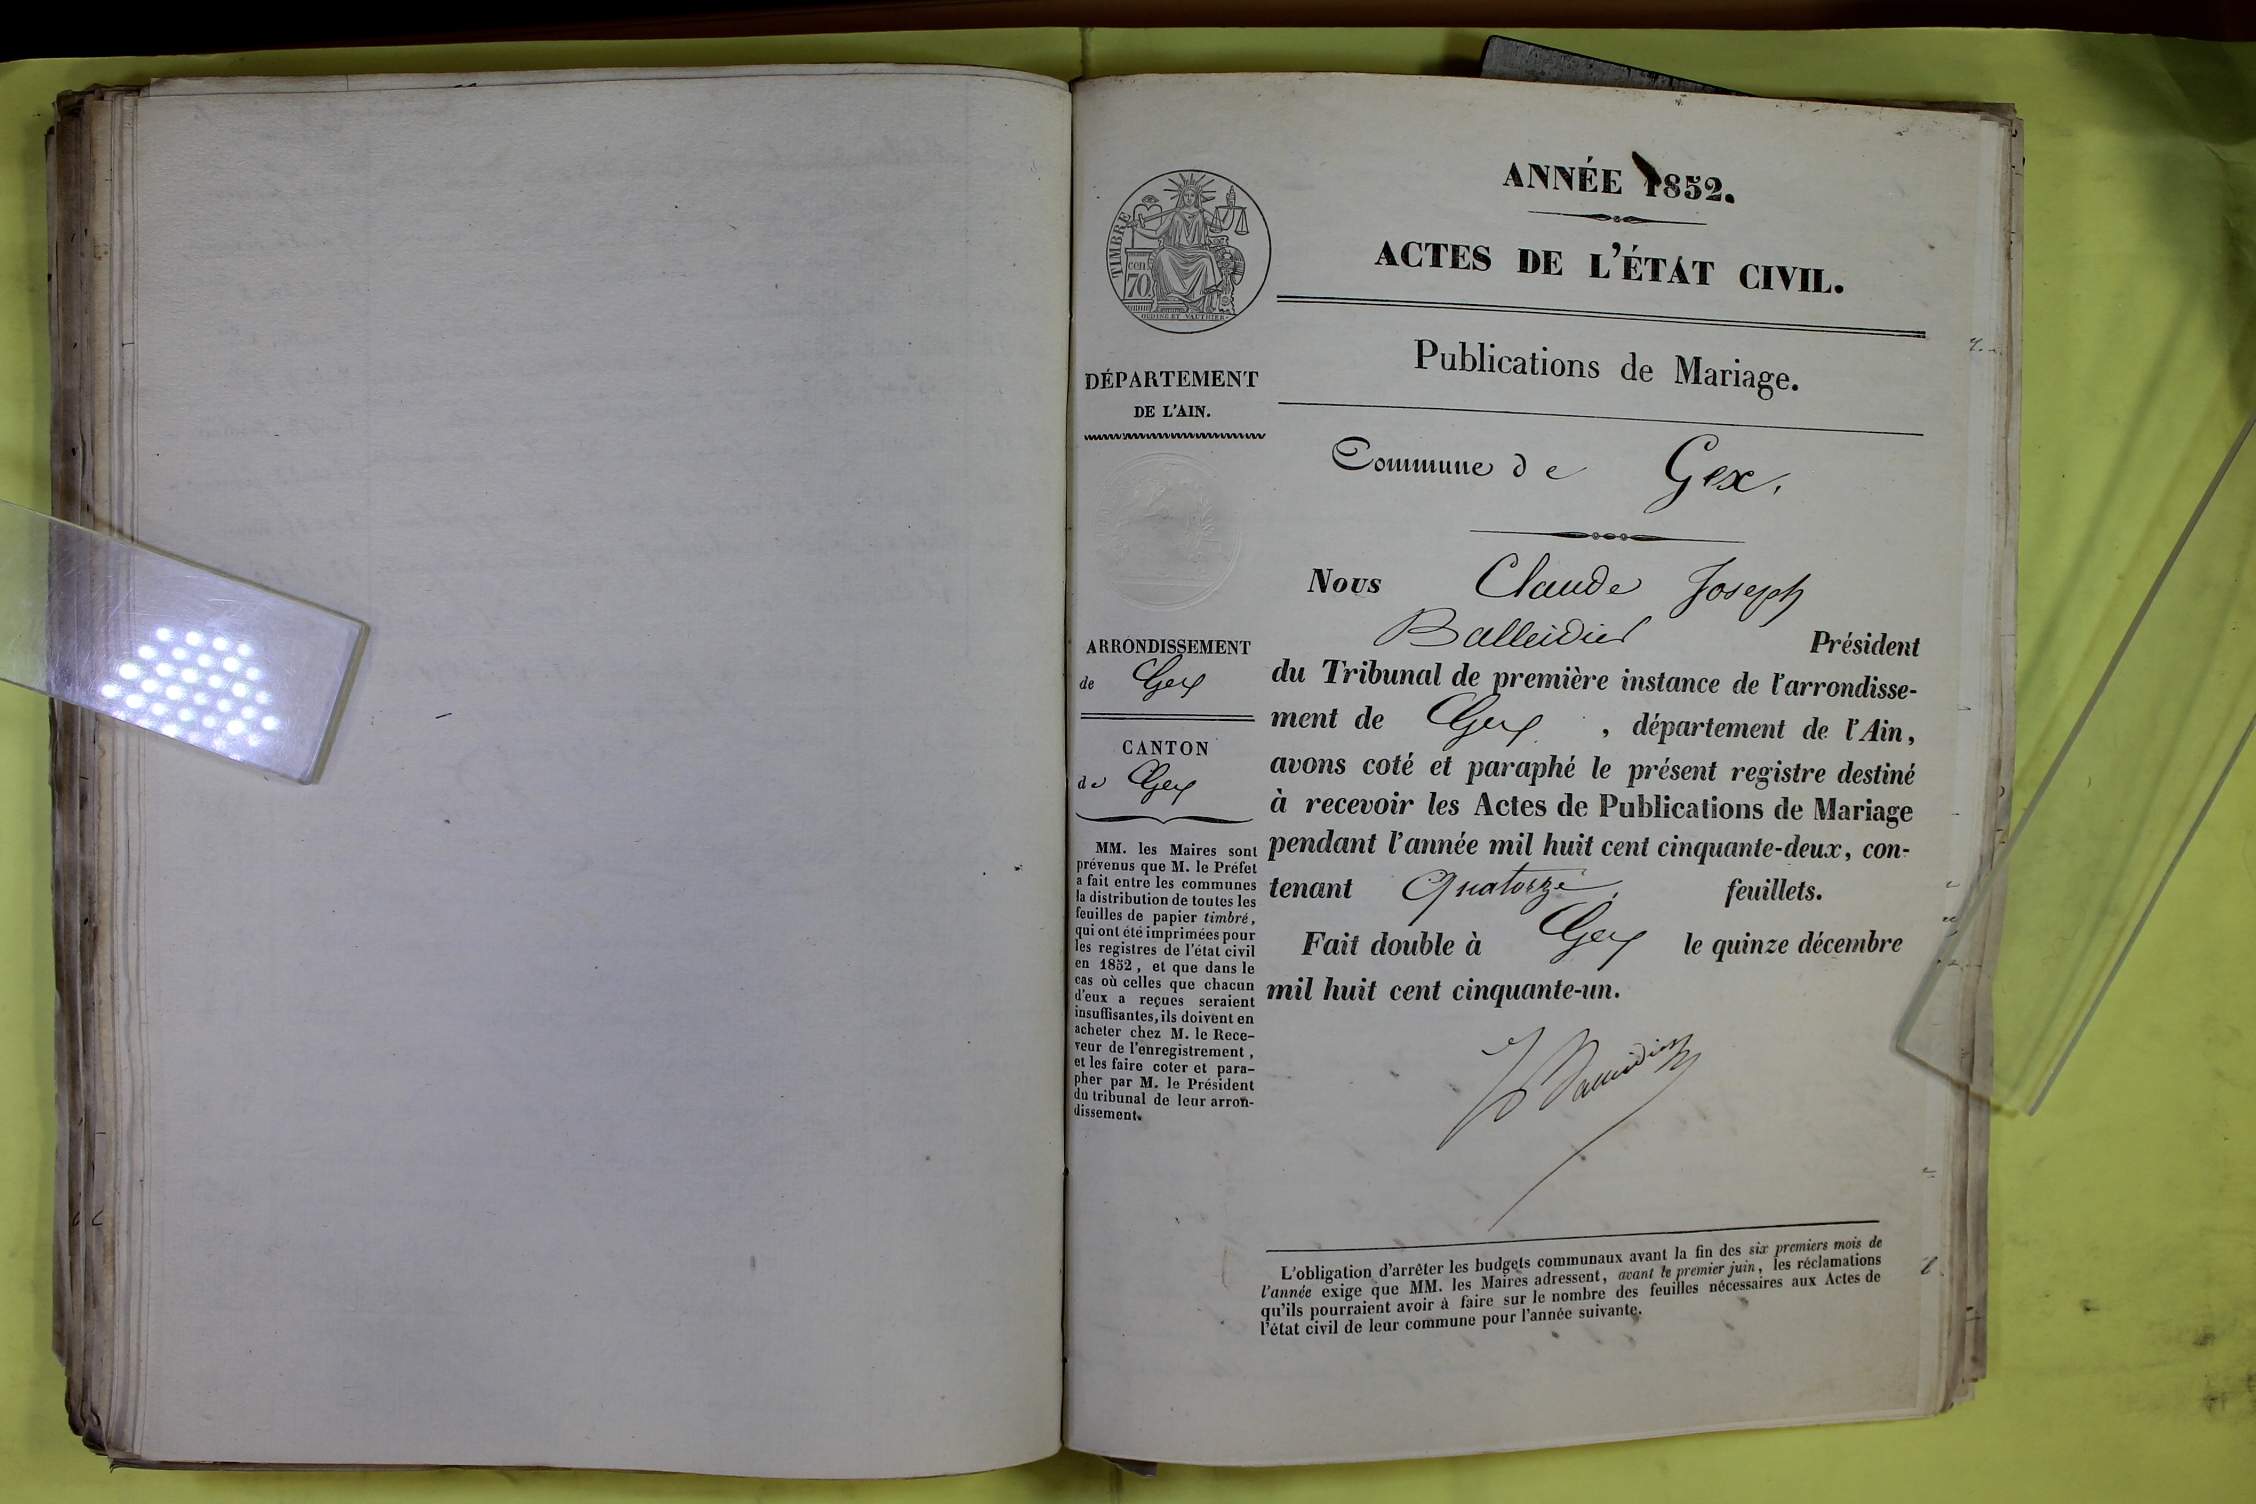 ANNÉE 1852.
ACTES DE L'ÉTAT CIVIL.
Publications de Mariage.
Commune de Gex.
TIMBRE
cen
70
OUDINÉ ET VAUTHIER
DÉPARTEMENT
DE L'AIN.
ARRONDISSEMENT
de Gex
CANTON
de Gex
MM. les Maires sont
prévenus que M. le Préfet
a fait entre les communes
la distribution de toutes les
feuilles de papier timbré,
qui ont été imprimées pour
les registres de l'état civil
en 1852, et que dans le
cas où celles que chacun
d'eux a reçues seraient
insuffisantes, ils doivent en
acheter chez M. le Rece-
veur de l'enregistrement,
et les faire coter et para-
pher par M. le Président
du tribunal de leur arron-
dissement.
Nous Claude Joseph
Balleidier Président
du Tribunal de première instance de l'arrondisse-
ment de Gex, département de l'Ain,
avons coté et paraphé le présent registre destiné
à recevoir les Actes de Publications de Mariage
pendant l'année mil huit cent cinquante-deux, con-
tenant Quatorze feuillets.
Fait double à Gex le quinze décembre
mil huit cent cinquante-un.
L'obligation d'arrêter les budgets communaux avant la fin des six premiers mois de
l'année exige que MM. les Maires adressent, avant le premier juin, les réclamations
qu'ils pourraient avoir à faire sur le nombre des feuilles nécessaires aux Actes de
l'état civil de leur commune pour l'année suivante.